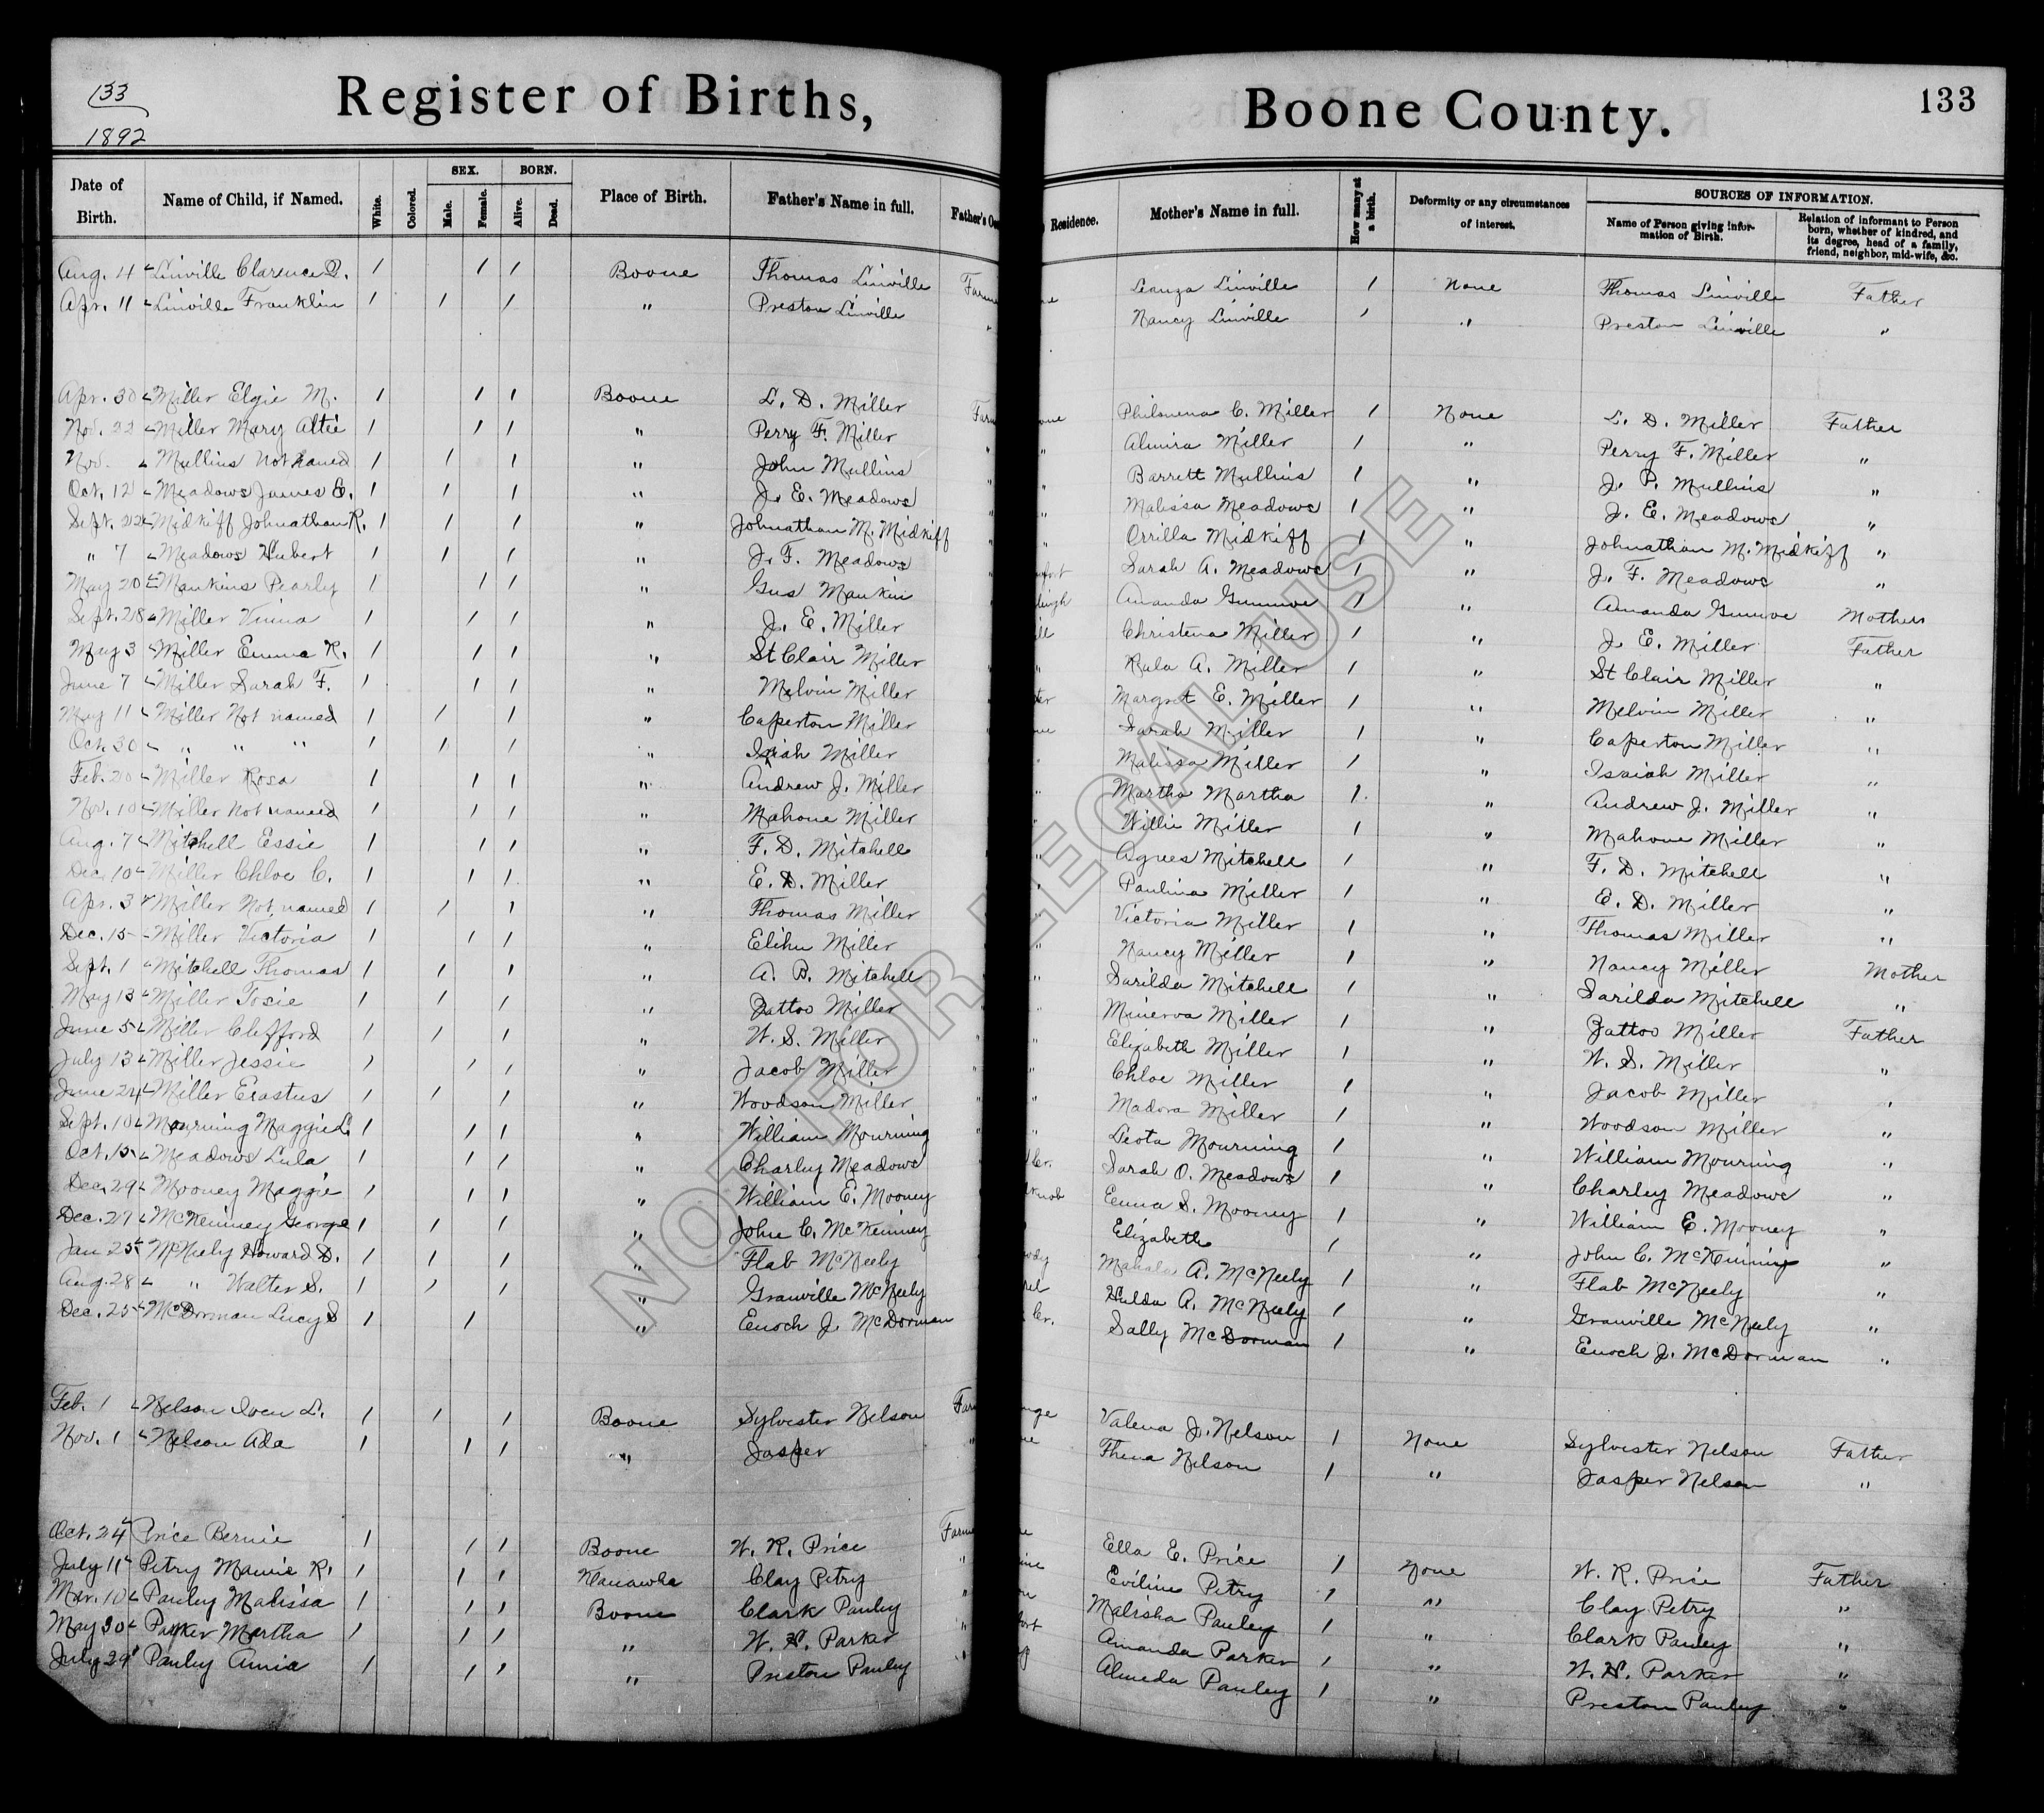 133
1892
Register of Births, Boone County.
133
Date of Birth. Name of Child, if Named. White. Colored. SEX. Male. Female. BORN. Alive. Dead. Place of Birth. Father's Name in full. Father's Residence. Mother's Name in full. How many at a birth. Deformity or any circumstances of interest. SOURCES OF INFORMATION. Name of Person giving information of Birth. Relation of informant to Person born, whether of kindred, and its degree, head of a family, friend, neighbor, mid-wife, &c.
Aug. 4 Linville Clarence 1 1 1 Boone Thomas Linville Farm Leanza Linville 1 None Thomas Linville Father
Apr. 11 Linville Franklin 1 1 1 " Preston Linville " Nancy Linville 1 " Preston Linville "
Apr. 30 Miller Elgie M. 1 1 1 Boone L. D. Miller Farm one Philomena C. Miller 1 None L. D. Miller Father
Nov. 22 Miller Mary Altie 1 1 1 " Perry F. Miller " Almira Miller 1 " Perry F. Miller "
Nov. Mullins Not named 1 1 1 " John Mullins " Barrett Mullins 1 " J. P. Mullins "
Oct. 12 Meadows James E. 1 1 1 " J. E. Meadows " Malissa Meadows 1 " J. E. Meadows "
Sept. 22 Midkiff Johnathan R. 1 1 1 " Johnathan M. Midkiff " Orrilla Midkiff 1 " Johnathan M. Midkiff "
" 7 Meadows Hubert 1 1 1 " J. F. Meadows " Sarah A. Meadows 1 " J. F. Meadows "
May 20 Mankins Pearly 1 1 1 " Gus Mankin " Amanda 1 " Amanda Mother
Sept. 28 Miller Vinia 1 1 1 " J. E. Miller Christena Miller 1 " J. E. Miller Father
May 3 Miller Emma R. 1 1 1 " St Clair Miller " Rula A. Miller 1 " St Clair Miller "
June 7 Miller Sarah F. 1 1 1 " Melvin Miller Margret E. Miller 1 " Melvin Miller "
May 11 Miller Not named 1 1 1 " Caperton Miller Sarah Miller 1 " Caperton Miller "
Oct. 30 " " " 1 1 1 " Isiah Miller Malissa Miller 1 " Isaiah Miller "
Feb. 20 Miller Rosa 1 1 1 " Andrew J. Miller " Martha Martha 1 " Andrew J. Miller "
Nov. 10 Miller Not named 1 1 1 " Mahone Miller " Willie Miller 1 " Mahone Miller "
Aug. 7 Mitchell Essie 1 1 1 " F. D. Mitchell " Agnes Mitchell 1 " F. D. Mitchell "
Dec. 10 Miller Chloe C. 1 1 1 " E. D. Miller " Paulina Miller 1 " E. D. Miller "
Apr. 3 Miller Not named 1 1 1 " Thomas Miller " Victoria Miller 1 " Thomas Miller "
Dec. 15 Miller Victoria 1 1 1 " Elihu Miller " Nancy Miller 1 " Nancy Miller Mother
Sept. 1 Mitchell Thomas 1 1 1 " A. B. Mitchell " Sarilda Mitchell 1 " Sarilda Mitchell "
May 13 Miller Tosie 1 1 1 " Zattoo Miller " Minerva Miller 1 " Zattoo Miller Father
June 5 Miller Clefford 1 1 1 " W. S. Miller " Elizabeth Miller 1 " W. S. Miller "
July 13 Miller Jessie 1 1 1 " Jacob Miller " Chloe Miller 1 " Jacob Miller "
June 24 Miller Erastus 1 1 1 " Woodson Miller " Madora Miller 1 " Woodson Miller "
Sept. 10 Mourning Maggie L 1 1 1 " William Mourning " Leota Mourning 1 " William Mourning "
Oct. 15 Meadows Lula 1 1 1 " Charley Meadows Cr. Sarah O. Meadows 1 " Charley Meadows "
Dec. 29 Mooney Maggie 1 1 1 " William E. Mooney knob Emma S. Mooney 1 " William E. Mooney "
Dec. 27 McKenney George 1 1 1 " John C. McKenney Elizabeth 1 " John C. McKenney "
Jan 25 McNeely Howard D. 1 1 1 " Flab McNeely Mahala A. McNeely 1 " Flab McNeely "
Aug. 28 " Walter S. 1 1 1 " Granville McNeely Hulda A. McNeely 1 " Granville McNeely "
Dec. 25 McDorman Lucy S 1 1 " Enoch J. McDorman Cr. Sally McDorman 1 " Enoch J. McDorman "
Feb. 1 Nelson Iven L. 1 1 1 Boone Sylvester Nelson Far Valena J. Nelson 1 None Sylvester Nelson Father
Nov. 1 Nelson Ada 1 1 1 " Jasper " Thena Nelson 1 " Jasper Nelson "
Oct. 24 Price Bernie 1 1 1 Boone W. R. Price Farm Ella E. Price 1 None W. R. Price Father
July 11 Petry Mamie R. 1 1 1 Kanawha Clay Petry " Eviline Petry 1 " Clay Petry "
Mar. 10 Pauley Malissa 1 1 1 Boone Clark Pauley " Malisha Pauley 1 " Clark Pauley "
May 30 Parker Martha 1 1 1 " W. H. Parker " Amanda Parker 1 " W. H. Parker "
July 29 Pauley Annia 1 1 1 " Preston Pauley " Almeda Pauley 1 " Preston Pauley "
NOT FOR LEGAL USE